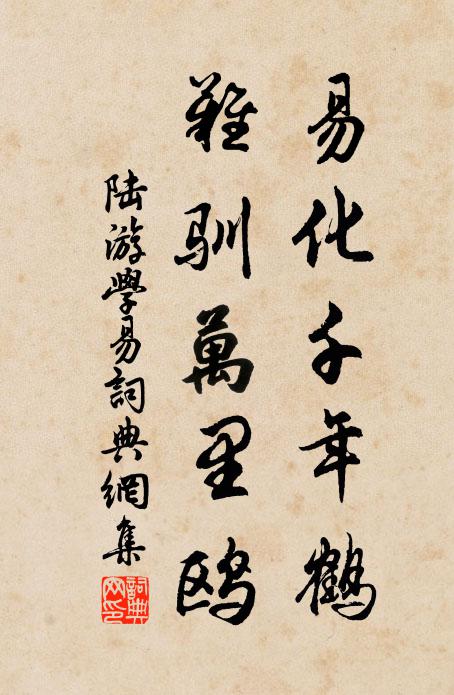 易化千年鶴
難馴萬里鷗
陆游學易詞典網集
詞典
网印